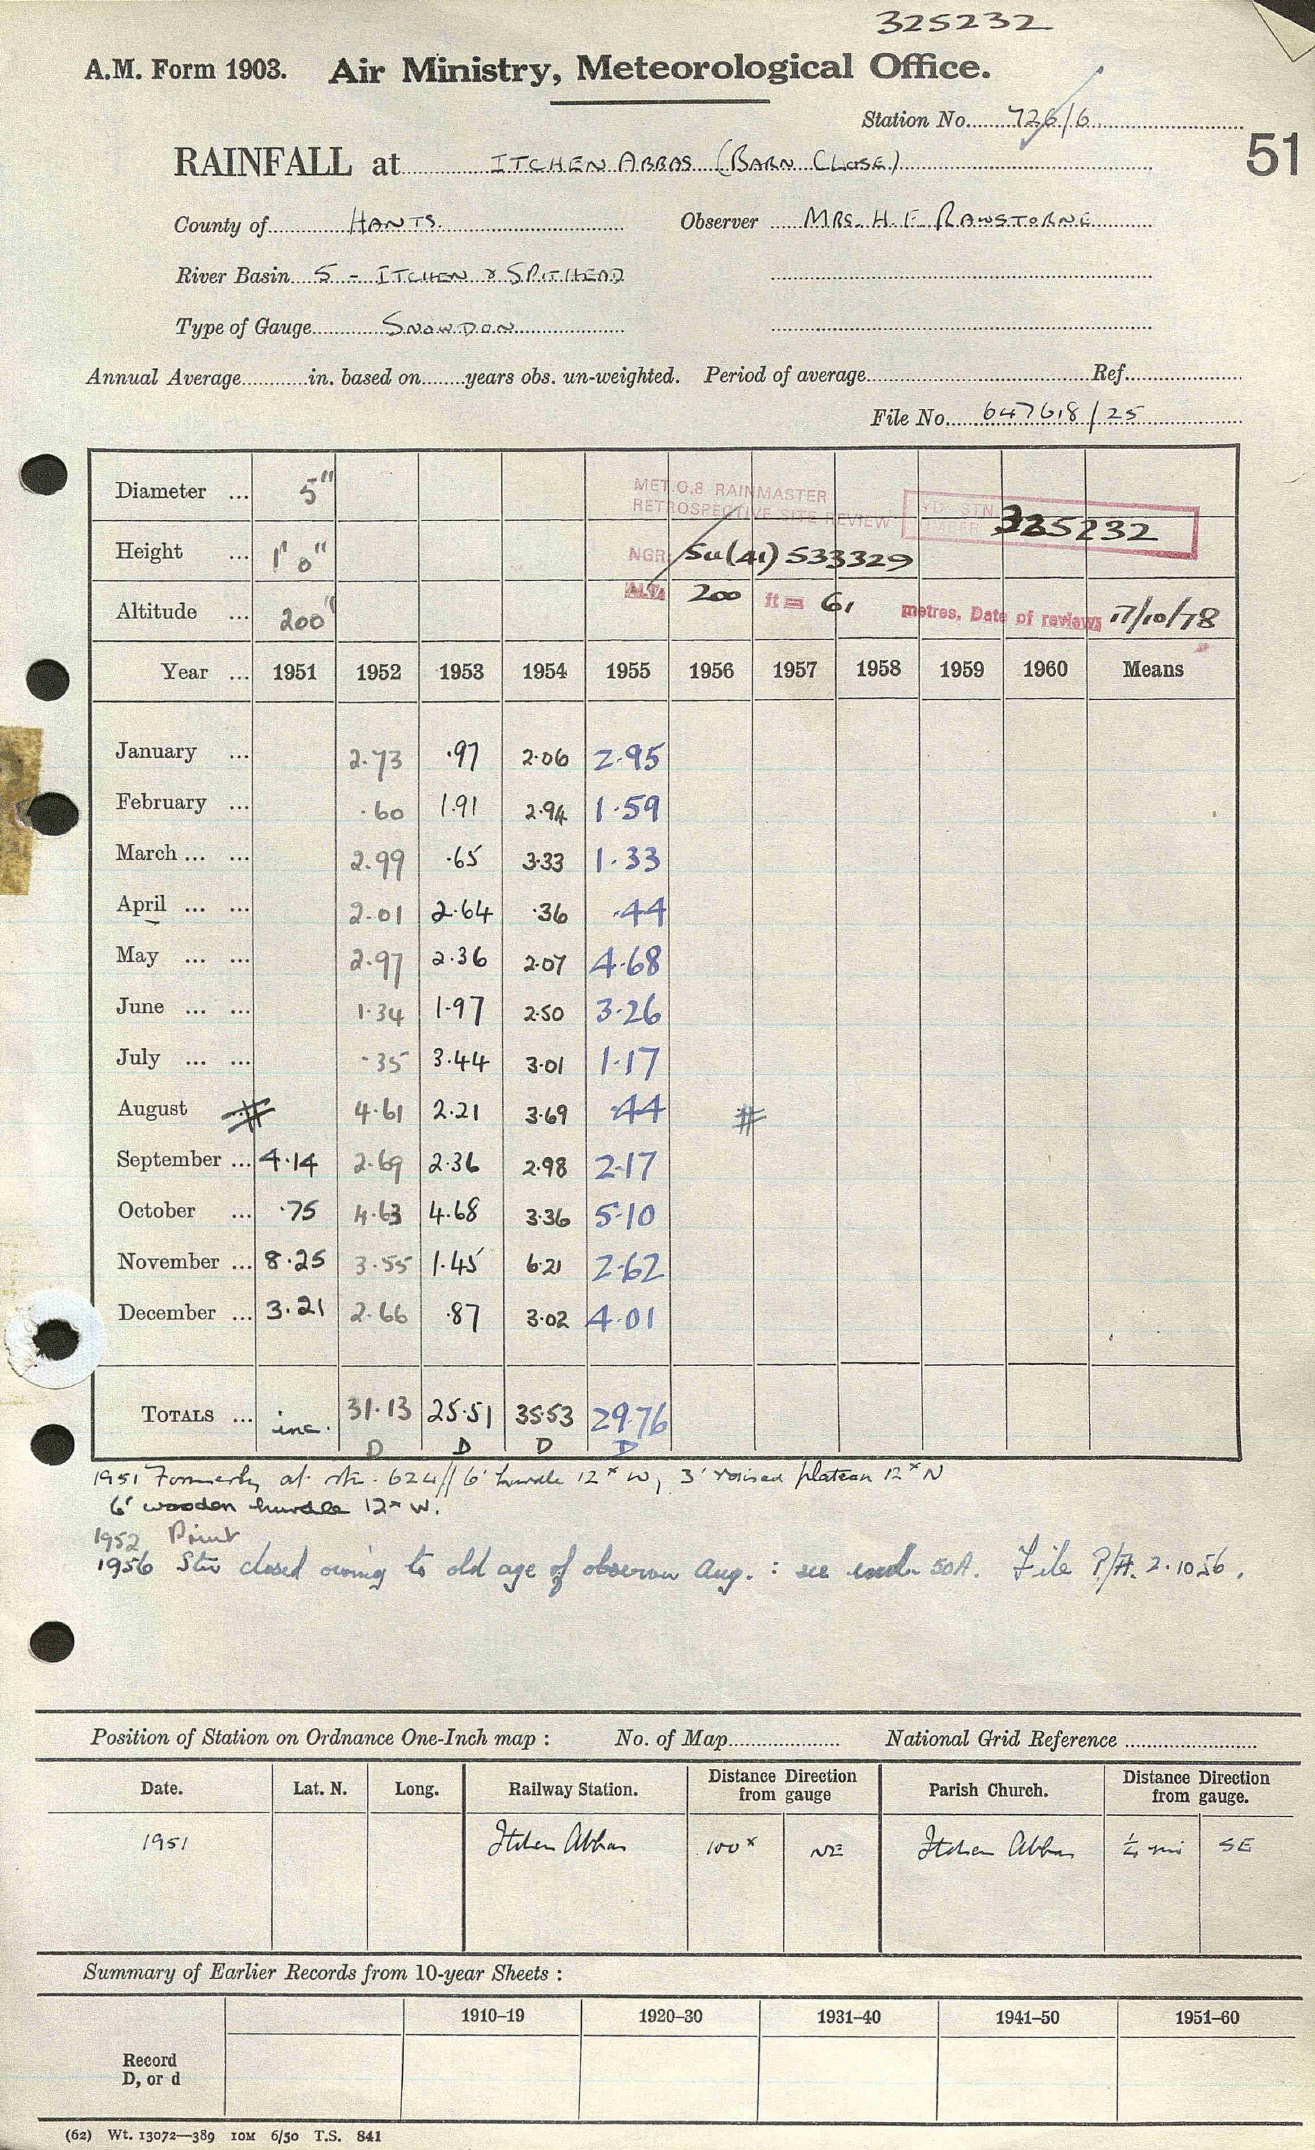 325232
A.M. Form 1903. Air Ministry, Meteorological Office.
Station No. 726/6
51
RAINFALL at ITCHEN ABBAS (BARN CLOSE)
County of HANTS. Observer MRS. H. F. RAWSTORNE
River Basin 5 - ITCHEN & SPITHEAD
Type of Gauge SNOWDON
Annual Average in. based on years obs. un-weighted. Period of average Ref.
File No. 647618/25
Diameter ... 5"
MET.O.8 RAINMASTER
RETROSPECTIVE SITE REVIEW
STN 325232
Height ... 1' 0" NGR SU(41) 533329
Altitude ... 200" ALT. 200 ft = 61 metres. Date of review 17/10/78
Year ... 1951 1952 1953 1954 1955 1956 1957 1958 1959 1960 Means
January ... 2.73 .97 2.06 2.95
February ... .60 1.91 2.94 1.59
March ... ... 2.99 .65 3.33 1.33
April ... ... 2.01 2.64 .36 .44
May ... ... 2.97 2.36 2.07 4.68
June ... ... 1.34 1.97 2.50 3.26
July ... ... .35 3.44 3.01 1.17
August # 4.61 2.21 3.69 .44 #
September ... 4.14 2.69 2.36 2.98 2.17
October ... .75 4.63 4.68 3.36 5.10
November ... 8.25 3.55 1.45 6.21 2.62
December ... 3.21 2.66 .87 3.02 4.01
TOTALS ... inc. 31.13 25.51 35.53 29.76
D D D D
1951 Formerly at stn. 624// 6' hurdle 12ˣ W, 3' raised plateau 12ˣ N
6' wooden hurdle 12ˣ W.
1952
1956 Stn closed owing to old age of observer Aug. : see under 50A. File P/A. 2.10.56.
Position of Station on Ordnance One-Inch map : No. of Map National Grid Reference
Date. Lat. N. Long. Railway Station. Distance from Direction gauge Parish Church. Distance from Direction gauge.
1951 Itchen Abbas 100ˣ NE Itchen Abbas ¼ mi SE
Summary of Earlier Records from 10-year Sheets :
1910–19 1920–30 1931–40 1941–50 1951–60
Record
D, or d
(62) Wt. 13072—389 10M 6/50 T.S. 841